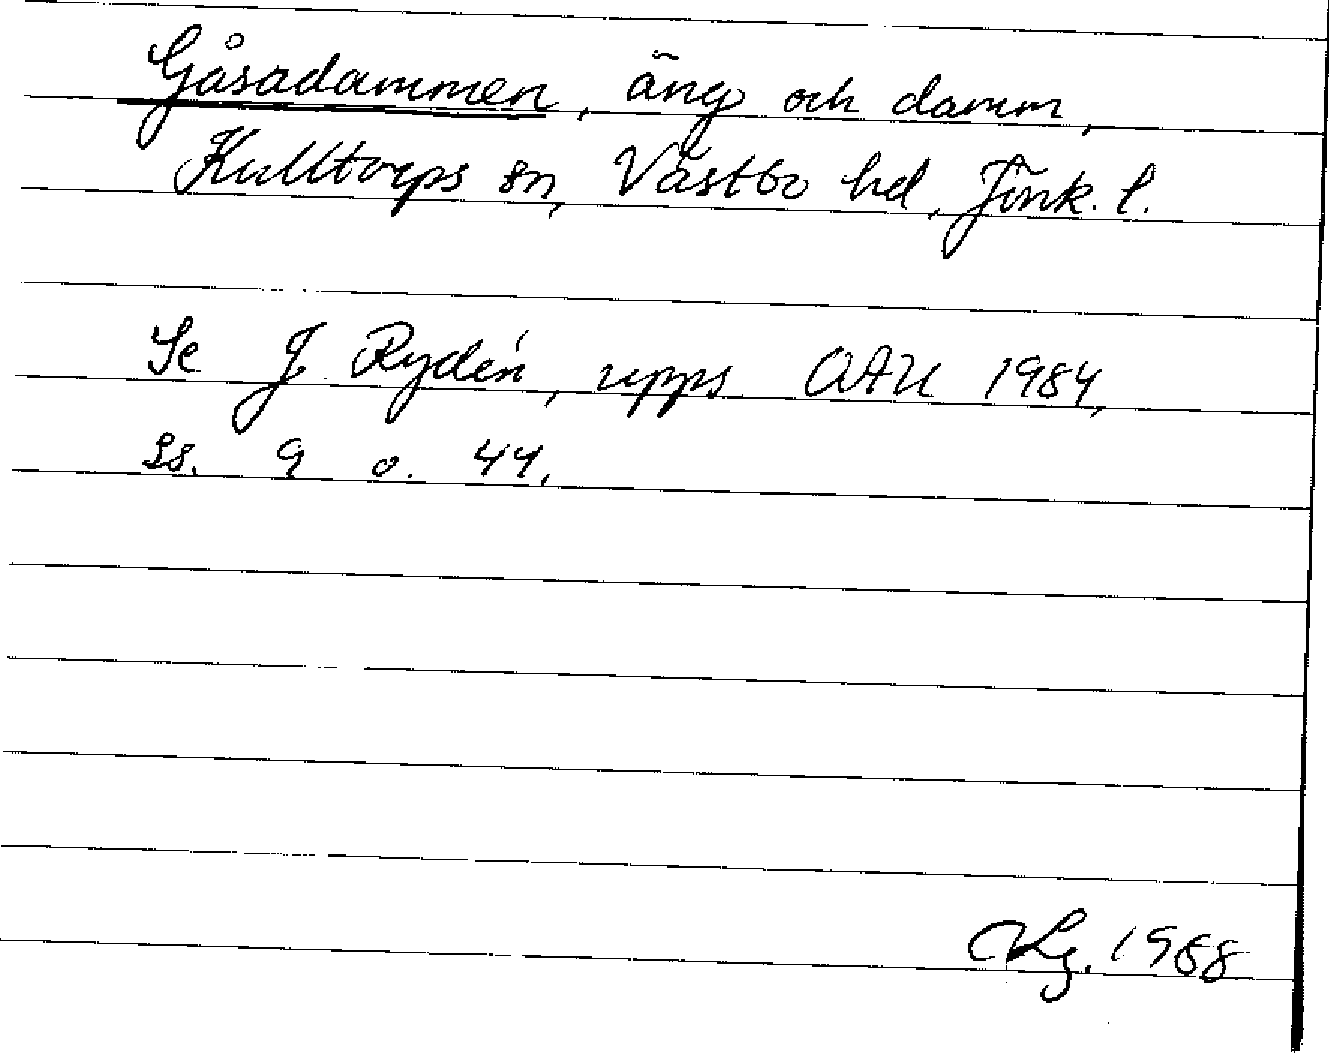 Gåsadammen, äng och damm,
Kulltorps sn, Västbo hd, Jönk. l.
Se J Rydén, upps OAU 1984,
ss. 9 o. 44.
1988